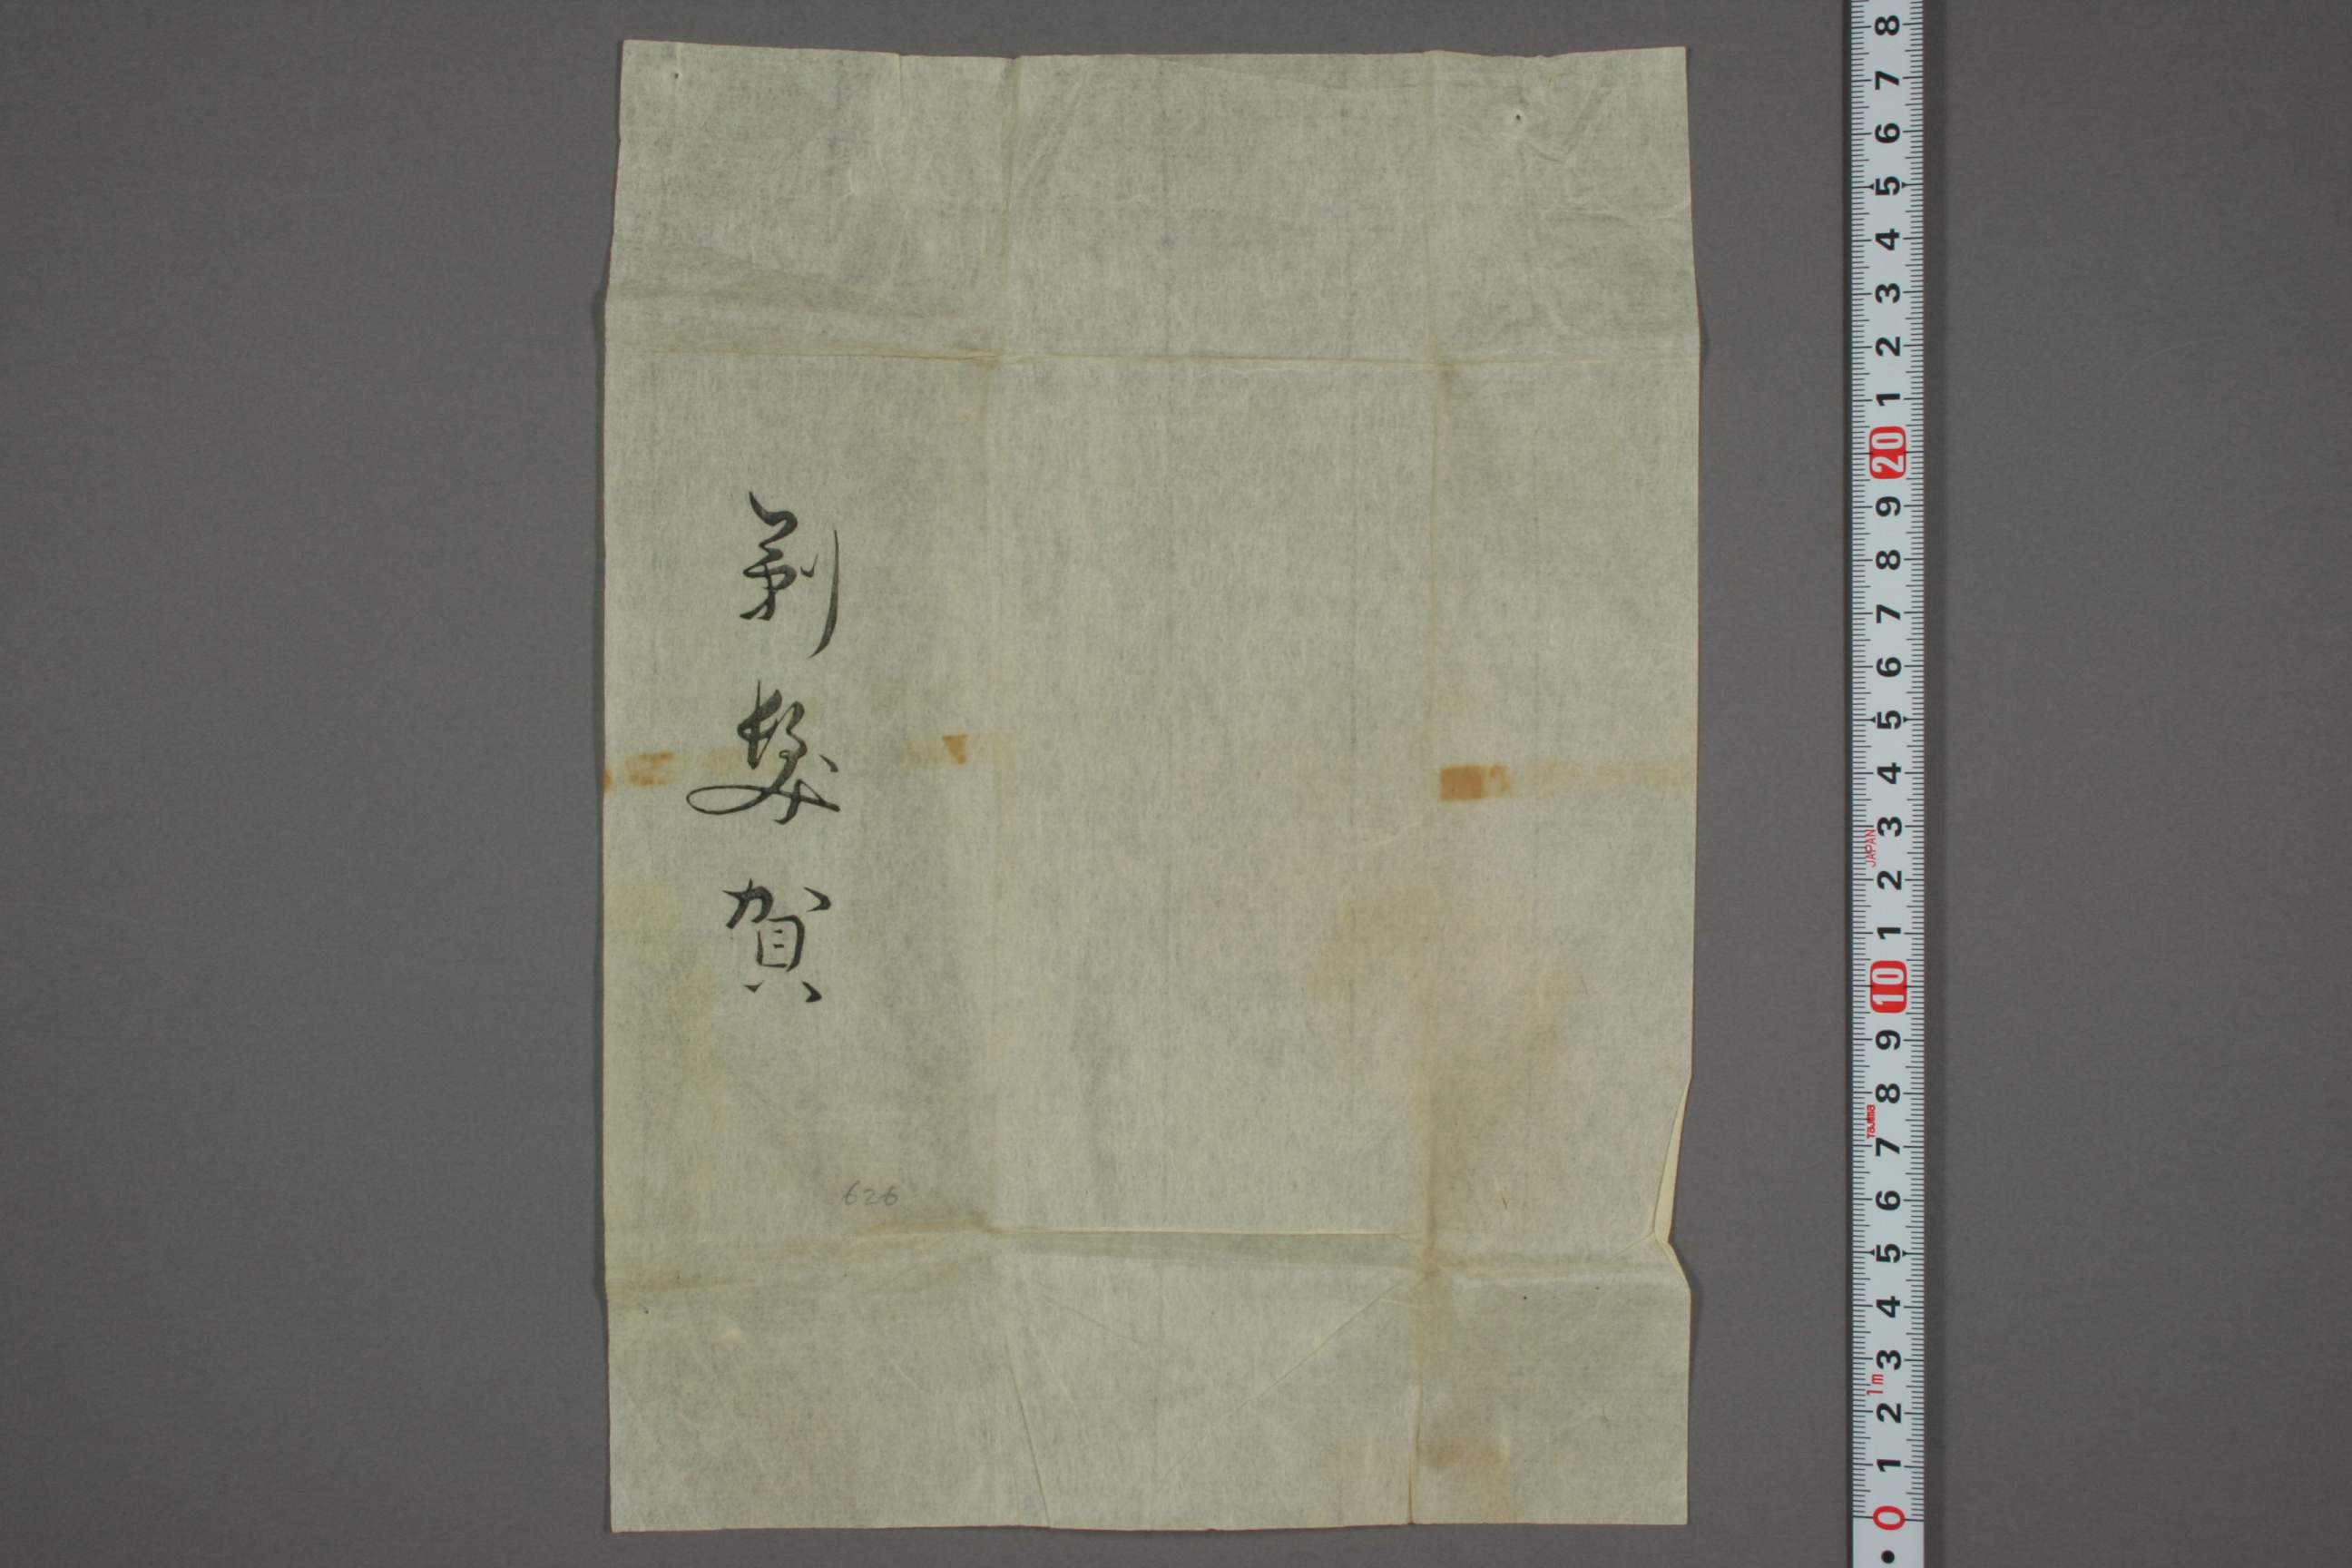 剃髪賀
626
8
7
6
5
4
3
2
1
20
9
8
7
6
5
4
3
JAPAN
2
1
10
9
8
Tajima
7
6
5
4
3
1m
2
1
0